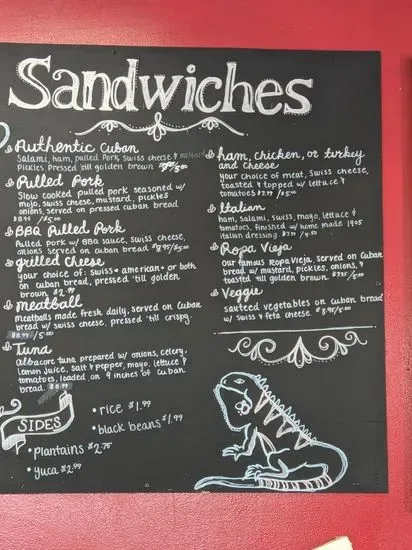 Sandwiches
Authentic Cuban
Salami, ham, pulled Pork, Swiss cheese &
Pickles. Pressed 'till golden brown
Pulled Pork
Slow cooked pulled pork seasoned w/
mojo, swiss cheese, mustard, pickles
onions, served on pressed cuban bread
BBQ Pulled Pork
Pulled Pork w/ BBQ sauce, Swiss cheese,
onions served on cuban bread
grilled Cheese
your choice of: swiss • american • or both
on cuban bread, pressed 'till golden
brown. $2.99
meatball
meatballs made fresh daily, served on Cuban
bread w/ swiss cheese. pressed 'till crispy.
Tuna
albacore tuna prepared w/ onions, celery,
lemon juice, salt & pepper, mayo, lettuce &
tomatoes, loaded on 9 inches of cuban
bread.
ham, chicken, or turkey
and cheese
your choice of meat, swiss cheese,
toasted & topped w/ lettuce &
tomatoes
Italian
ham, salami, swiss, mayo, lettuce &
tomatoes, finished w/ home made
italian dressing
Ropa Vieja
our famous Ropa Vieja, served on Cuban
bread w/ mustard, pickles, onions, &
toasted 'till golden brown
Veggie
sauteed vegetables on cuban bread
w/ swiss & feta cheese.
SIDES
• rice $1.99
• black beans $1.99
• plantains $2.75
• yuca $2.99